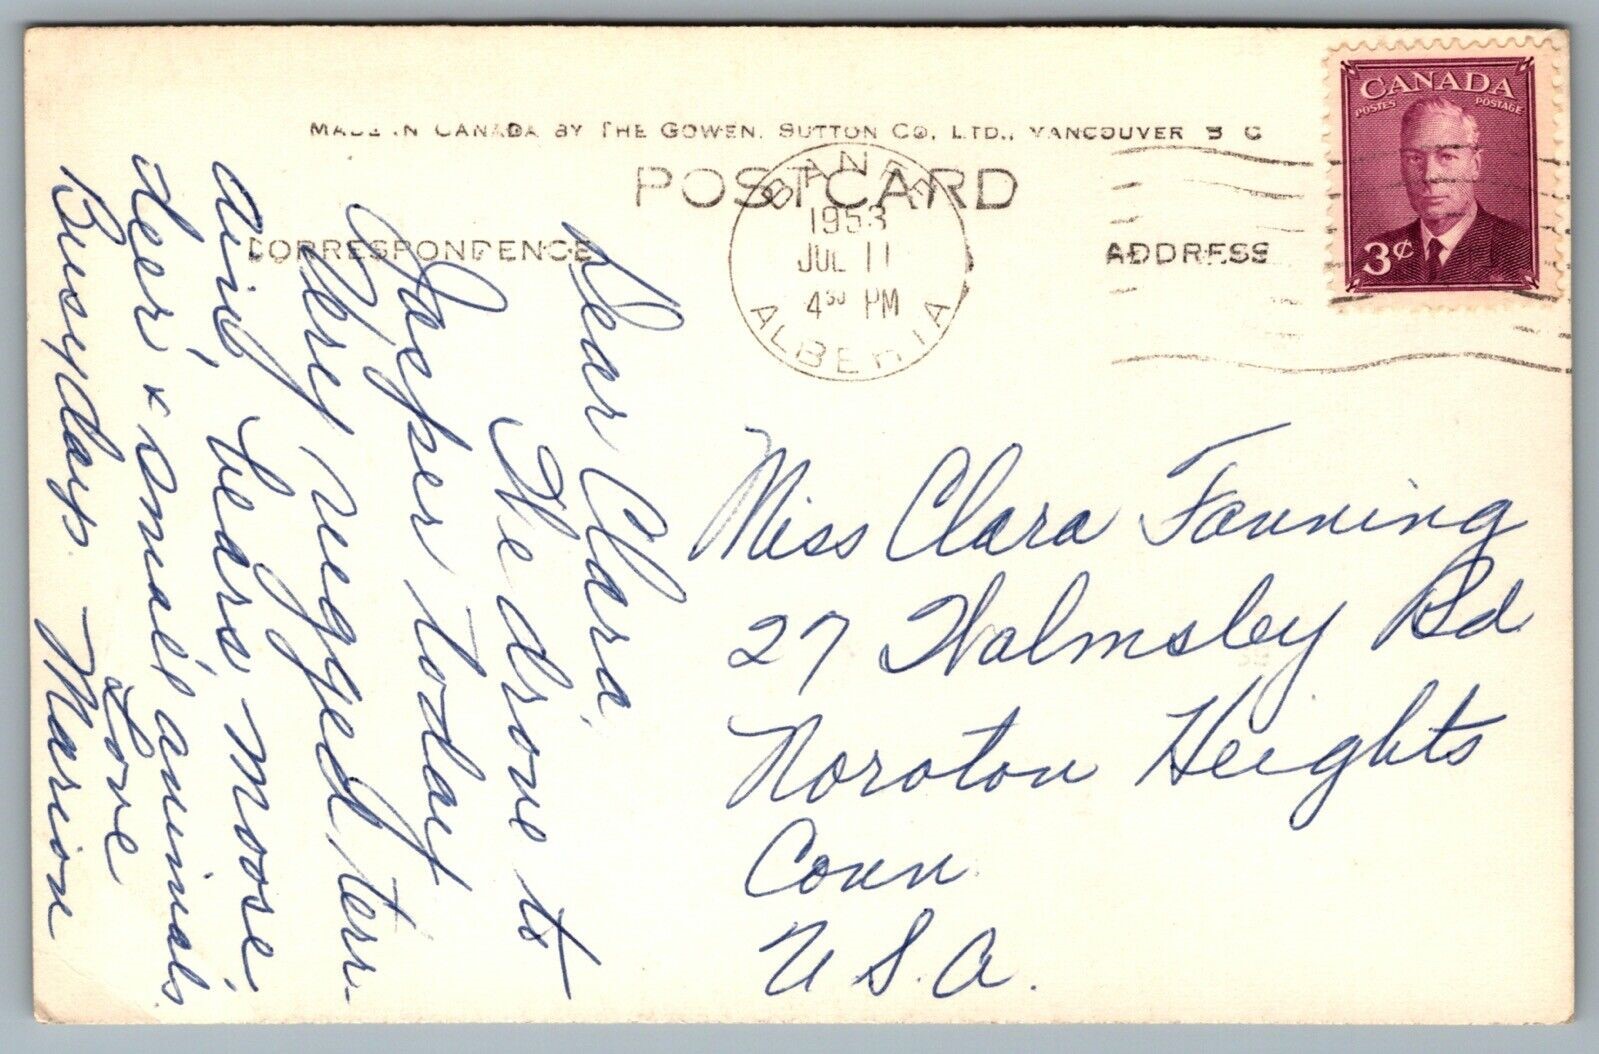 MADE IN CANADA BY THE GOWEN, SUTTON CO. LTD., VANCOUVER B C
POSTCARD
CORRESPONDENCE
ADDRESS
BANFF
1953
JUL 11
4 30 PM
ALBERTA
CANADA
POSTES POSTAGE
3¢
Dear Clara,
The drove to
Jasper today
Very rugged terri-
aiń bears, moose
deer, & small animals.
Busy days.
Love
Marion
Miss Clara Fanning
27 Walmsley Rd
Noroton Heights
Conn.
U.S.A.